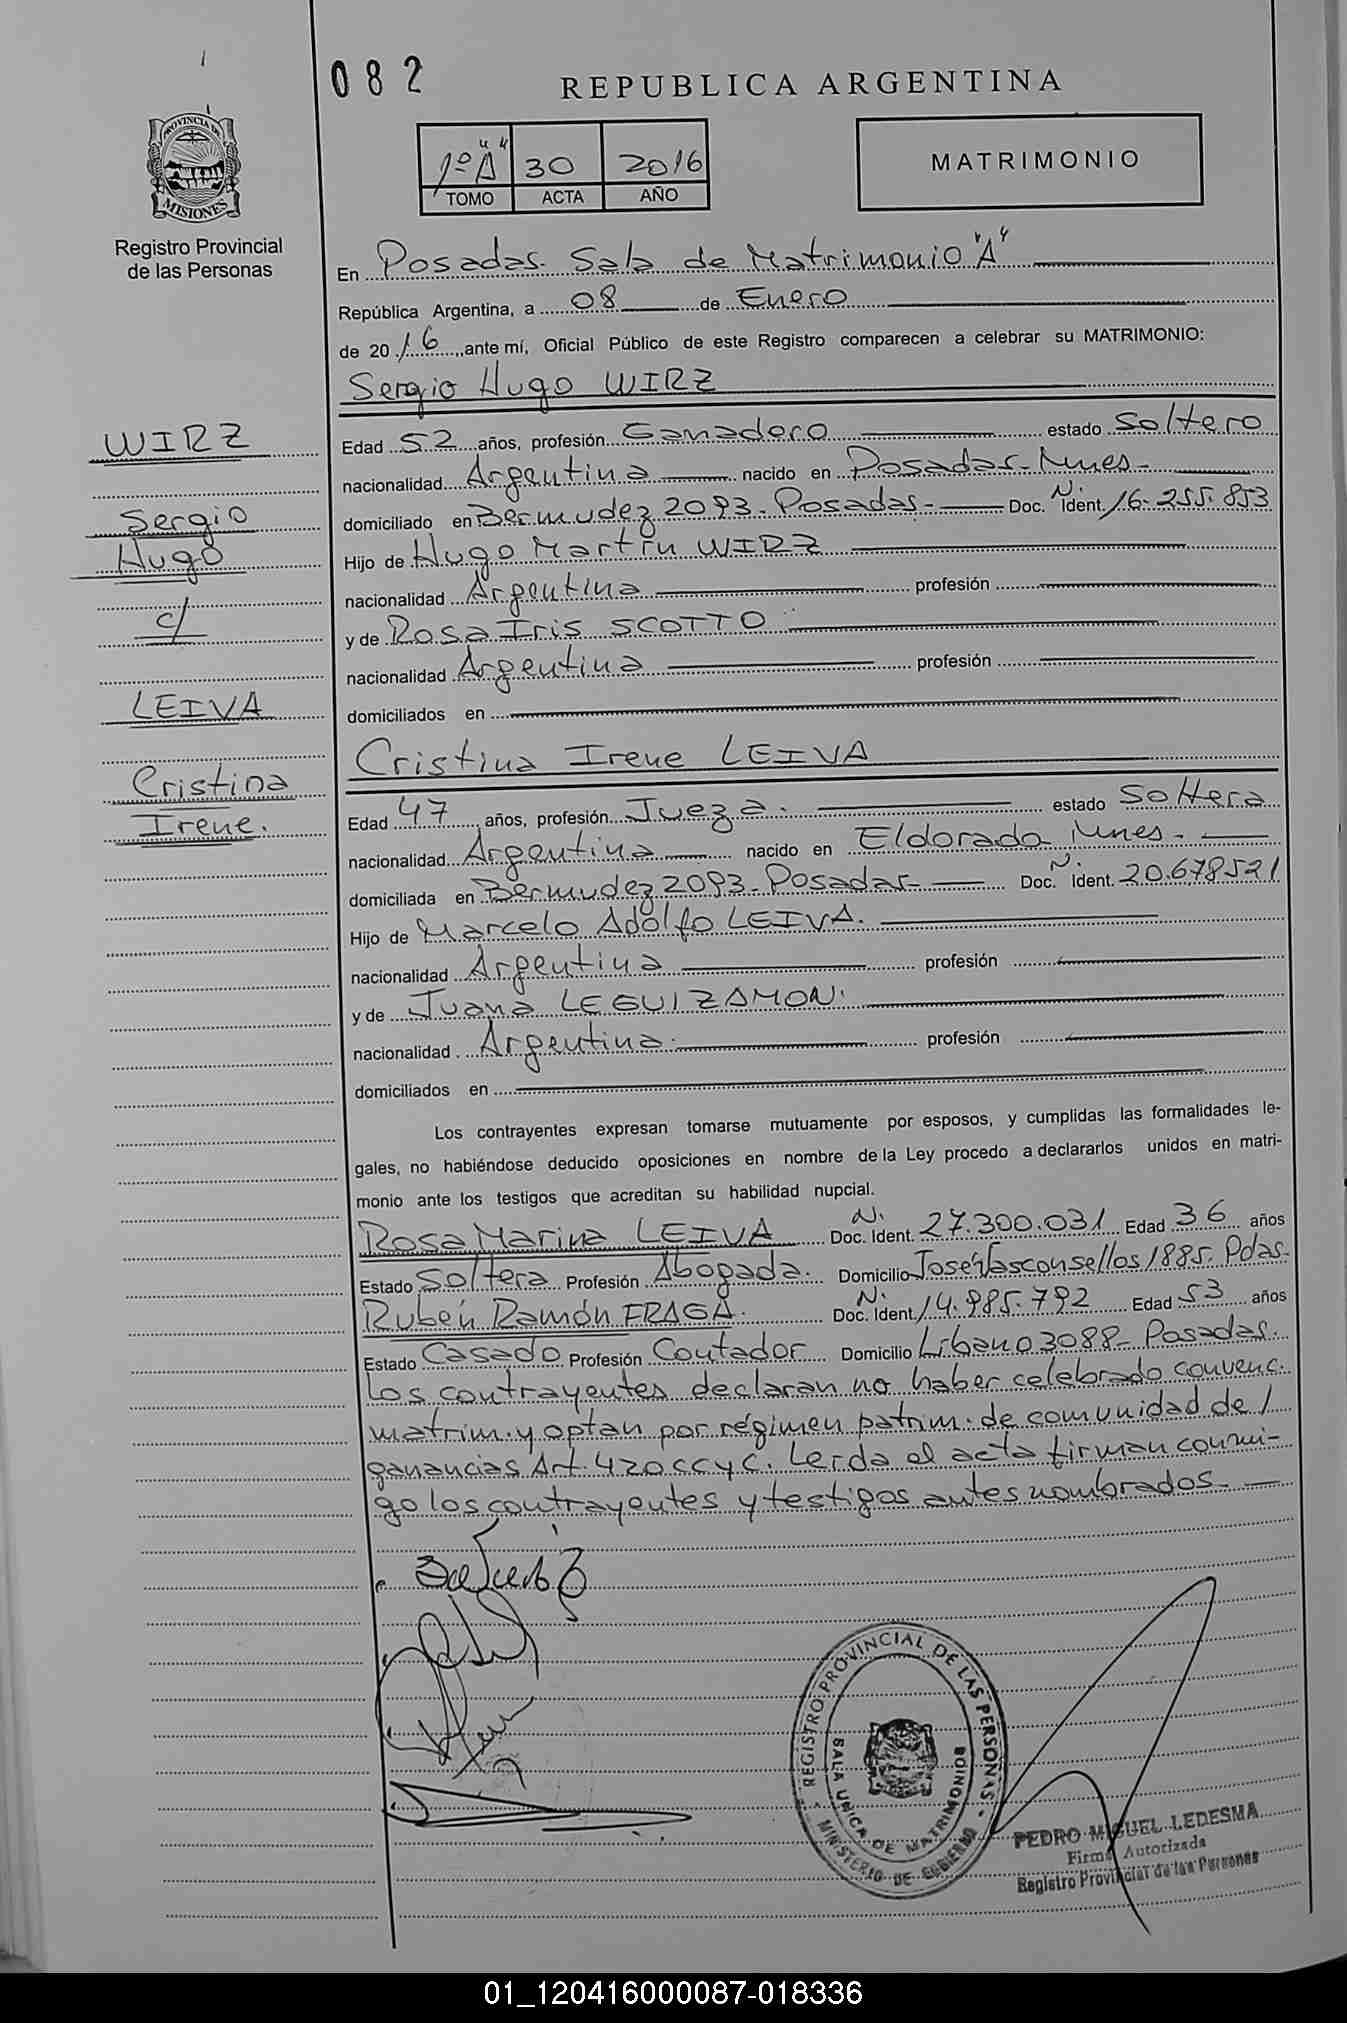 082
REPUBLICA ARGENTINA
PROVINCIA DE
MISIONES
Registro Provincial
de las Personas
1º "A" 30 2016
TOMO ACTA AÑO
MATRIMONIO
En Posadas. Sala de Matrimonio "A"
República Argentina, a 08 de Enero
de 2016, ante mí, Oficial Público de este Registro comparecen a celebrar su MATRIMONIO:
Sergio Hugo WIRZ
WIRZ
Sergio
Hugo
c/
LEIVA
Cristina
Irene.
Edad 52 años, profesión Ganadero estado Soltero
nacionalidad Argentina nacido en Posadas-Mnes-
domiciliado en Bermudez 2093. Posadas- Doc. Nº Ident. 16.255.853
Hijo de Hugo Martín WIRZ
nacionalidad Argentina profesión
y de Rosa Iris SCOTTO
nacionalidad Argentina profesión
domiciliados en
Cristina Irene LEIVA
Edad 47 años, profesión Jueza. estado Soltera
nacionalidad Argentina nacido en Eldorado Mnes-
domiciliada en Bermudez 2093. Posadas- Doc. Nº Ident. 20.678.521
Hijo de Marcelo Adolfo LEIVA.
nacionalidad Argentina profesión
y de Juana LEGUIZAMON.
nacionalidad Argentina. profesión
domiciliados en
Los contrayentes expresan tomarse mutuamente por esposos, y cumplidas las formalidades le-
gales, no habiéndose deducido oposiciones en nombre de la Ley procedo a declararlos unidos en matri-
monio ante los testigos que acreditan su habilidad nupcial.
Rosa Marina LEIVA Doc. Nº Ident. 27.300.031 Edad 36 años
Estado Soltera Profesión Abogada. Domicilio José Vasconsellos 1885. Pdas.
Rubén Ramón FRAGA. Doc. Nº Ident. 14.985.792 Edad 53 años
Estado Casado Profesión Contador Domicilio Libano 3088- Posadas.
Los contrayentes declaran no haber celebrado convenc.
matrim. y optan por régimen patrim. de comunidad de
ganancias Art. 420 CCyC. Leida el acta firman conmi-
go los contrayentes y testigos antes nombrados.
REGISTRO PROVINCIAL DE LAS PERSONAS
SALA UNICA DE MATRIMONIOS
MINISTERIO DE GOBIERNO
PEDRO MIGUEL LEDESMA
Firma Autorizada
Registro Provincial de las Personas
01_120416000087-018336